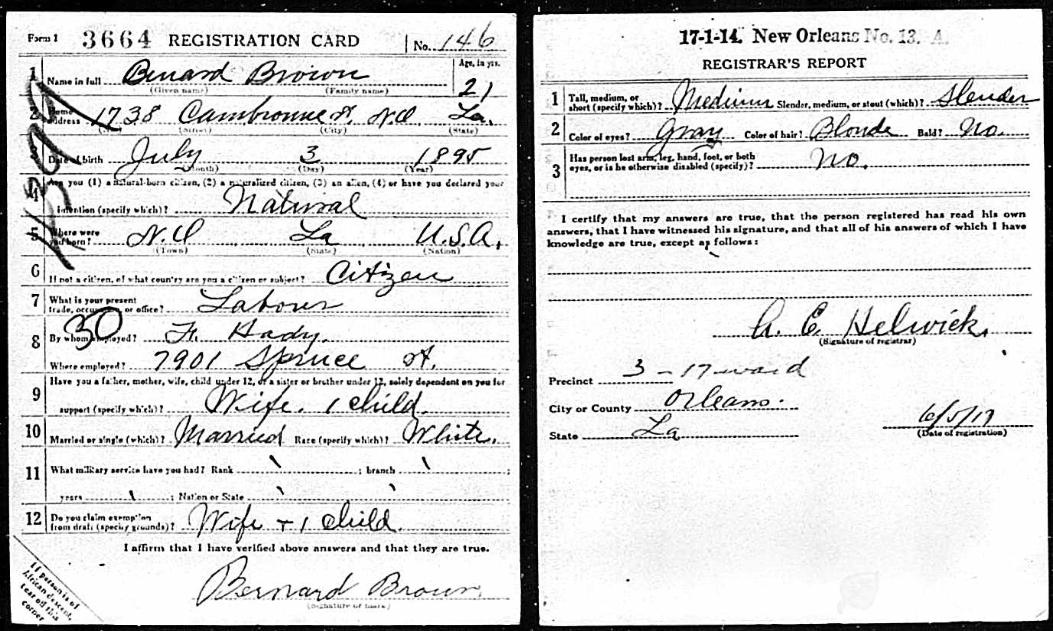 Form 1 3664 REGISTRATION CARD No. 146
1 Name in full Benard Brown Age, in yrs. 21
(Given name) (Family name)
2 Home address 1738 Cambronne St. NO La.
(Street) (City) (State)
Date of birth July 3 1895
(Month) (Day) (Year)
4 Are you (1) a natural-born citizen, (2) a naturalized citizen, (3) an alien, (4) or have you declared your
intention (specify which)? Natural
5 Where were you born? N.O La U.S.A.
(Town) (State) (Nation)
6 If not a citizen, of what country are you a citizen or subject? Citizen
7 What is your present
trade, occupation, or office? Laborer
30
8 By whom employed? Ft. Hady.
Where employed? 7901 Spruce St.
9 Have you a father, mother, wife, child under 12, or a sister or brother under 12, solely dependent on you for
support (specify which)? Wife. 1 child.
10 Married or single (which)? Married Race (specify which)? White.
11 What military service have you had? Rank \ ; branch \ ;
years \ ; Nation or State \ \
12 Do you claim exemption
from draft (specify grounds)? Wife + 1 Child.
I affirm that I have verified above answers and that they are true.
Bernard Brown
(Signature or mark)
If person is of
African descent,
tear off this
corner
17-1-14. New Orleans No. 13. A.
REGISTRAR'S REPORT
1 Tall, medium, or
short (specify which)? Medium Slender, medium, or stout (which)? Slender
2 Color of eyes? Gray Color of hair? Blonde Bald? No.
3 Has person lost arm, leg, hand, foot, or both
eyes, or is he otherwise disabled (specify)? No.
I certify that my answers are true, that the person registered has read his own
answers, that I have witnessed his signature, and that all of his answers of which I have
knowledge are true, except as follows:
A. C. Helwick.
(Signature of registrar)
Precinct 3 - 17 ward
City or County Orleans.
State La
6/5/17
(Date of registration)